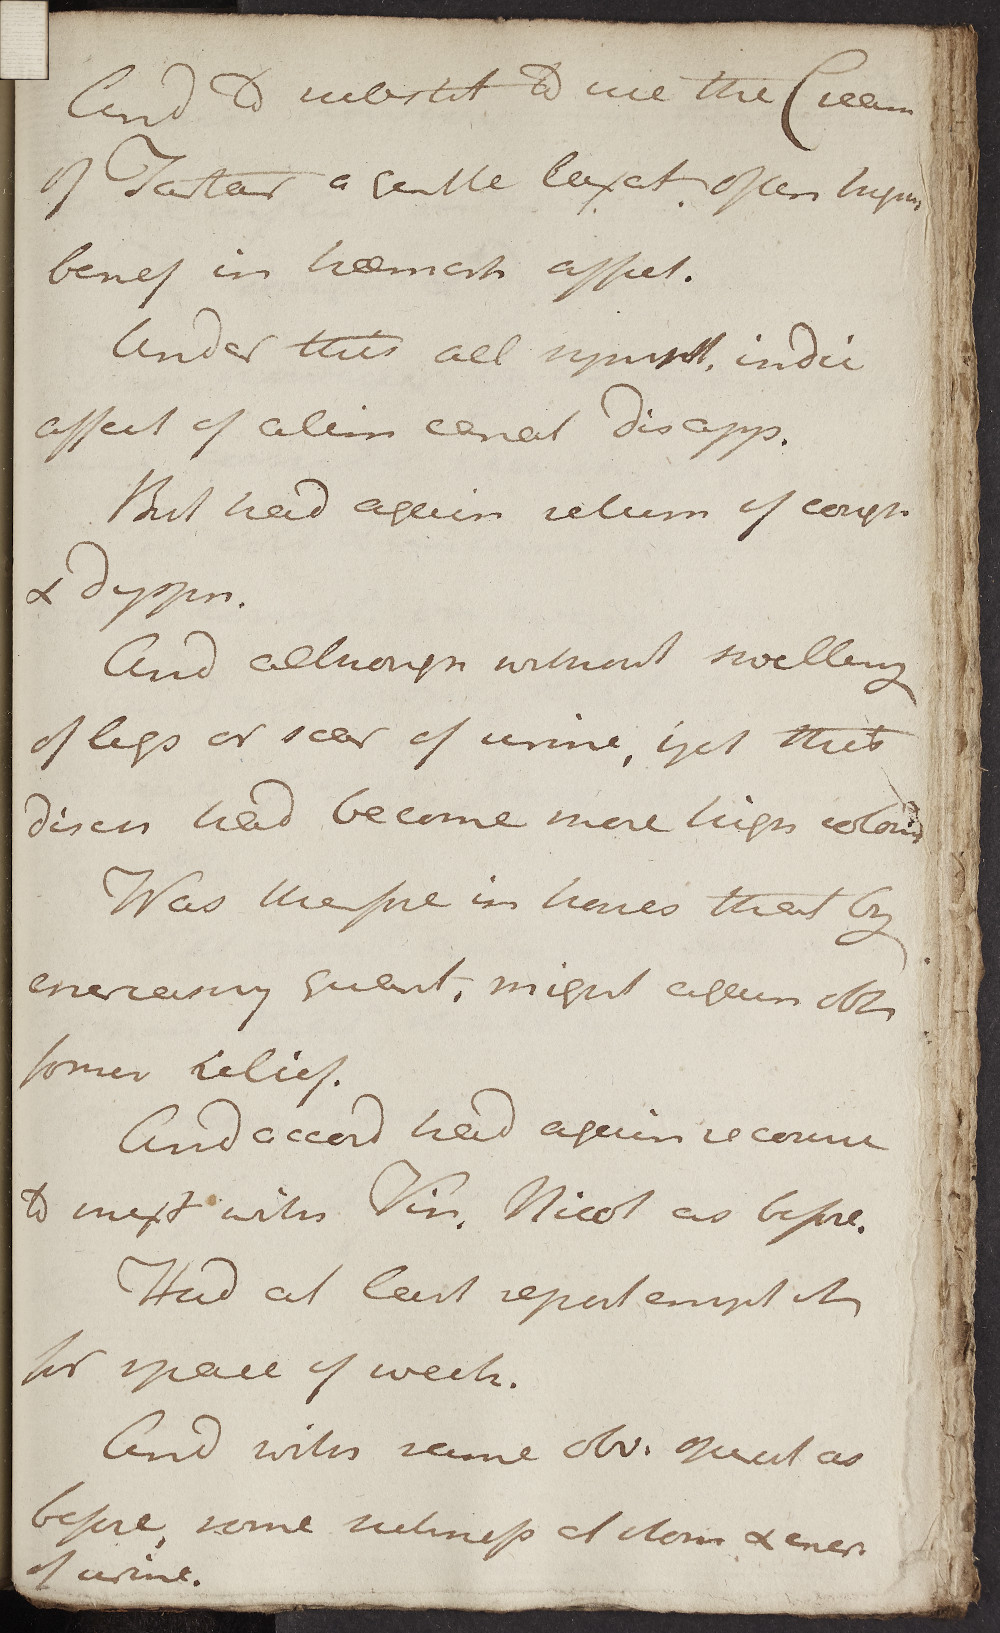 And to substit to use the Cream
of Tartar a gentle laxat. often highly
benef in hæmorrh affect.
Under this all sympt. indic
affect of alim canal disapp.
But had again return of cough
& dyspn.
And although without swelling
of legs or scar of urine, yet this
disch had become more high colour'd
Was therefore in hopes that by
encreasing quant. might again obtn
former relief.
And accord had again recourse
to mixt with Vin. Nicot as before.
Had at last report empl it
for space of week.
And with same obv. effect as
before, some sickness at stom & encr.
of urine.